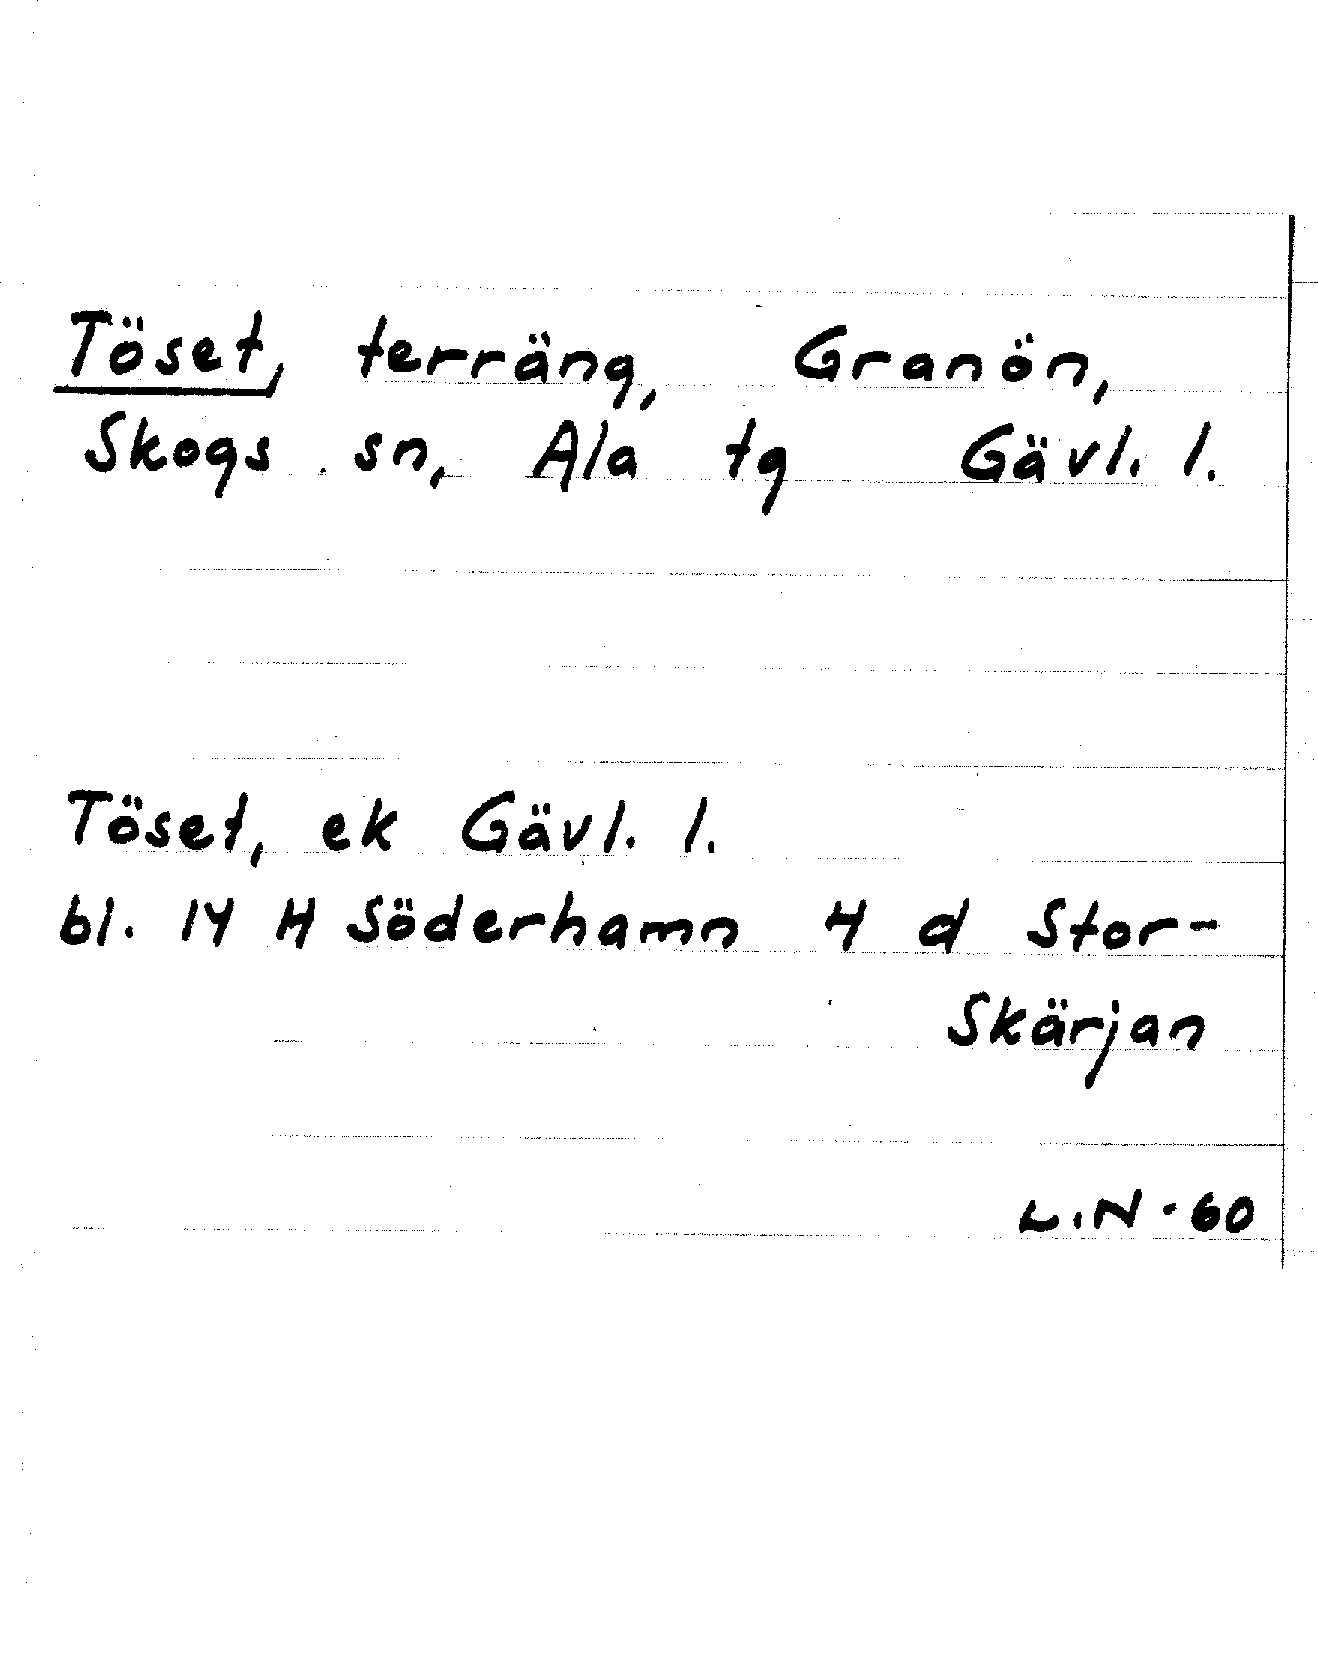 Töset, terräng, Granön,
Skogs sn, Ala tg Gävl. l.
Töset, ek Gävl. l.
bl. 14 H Söderhamn 4 d Stor-
Skärjan
L.N - 60